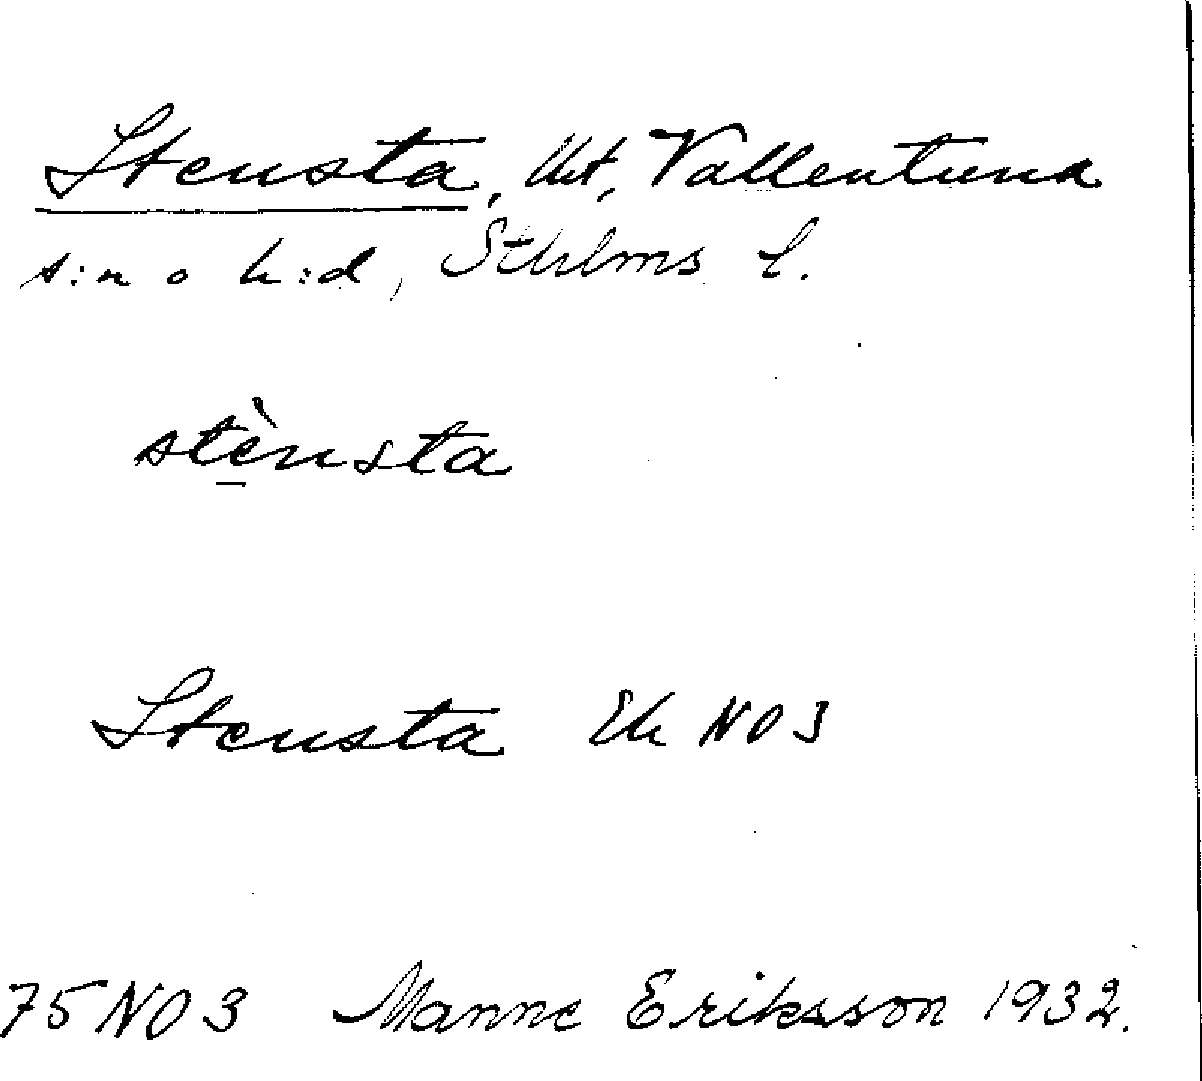 Stensta, Vallentuna
s:n o h:d, Sthlms l.
stènsta
Stensta Ek NO3
75 NO 3 Manne Eriksson 1932.